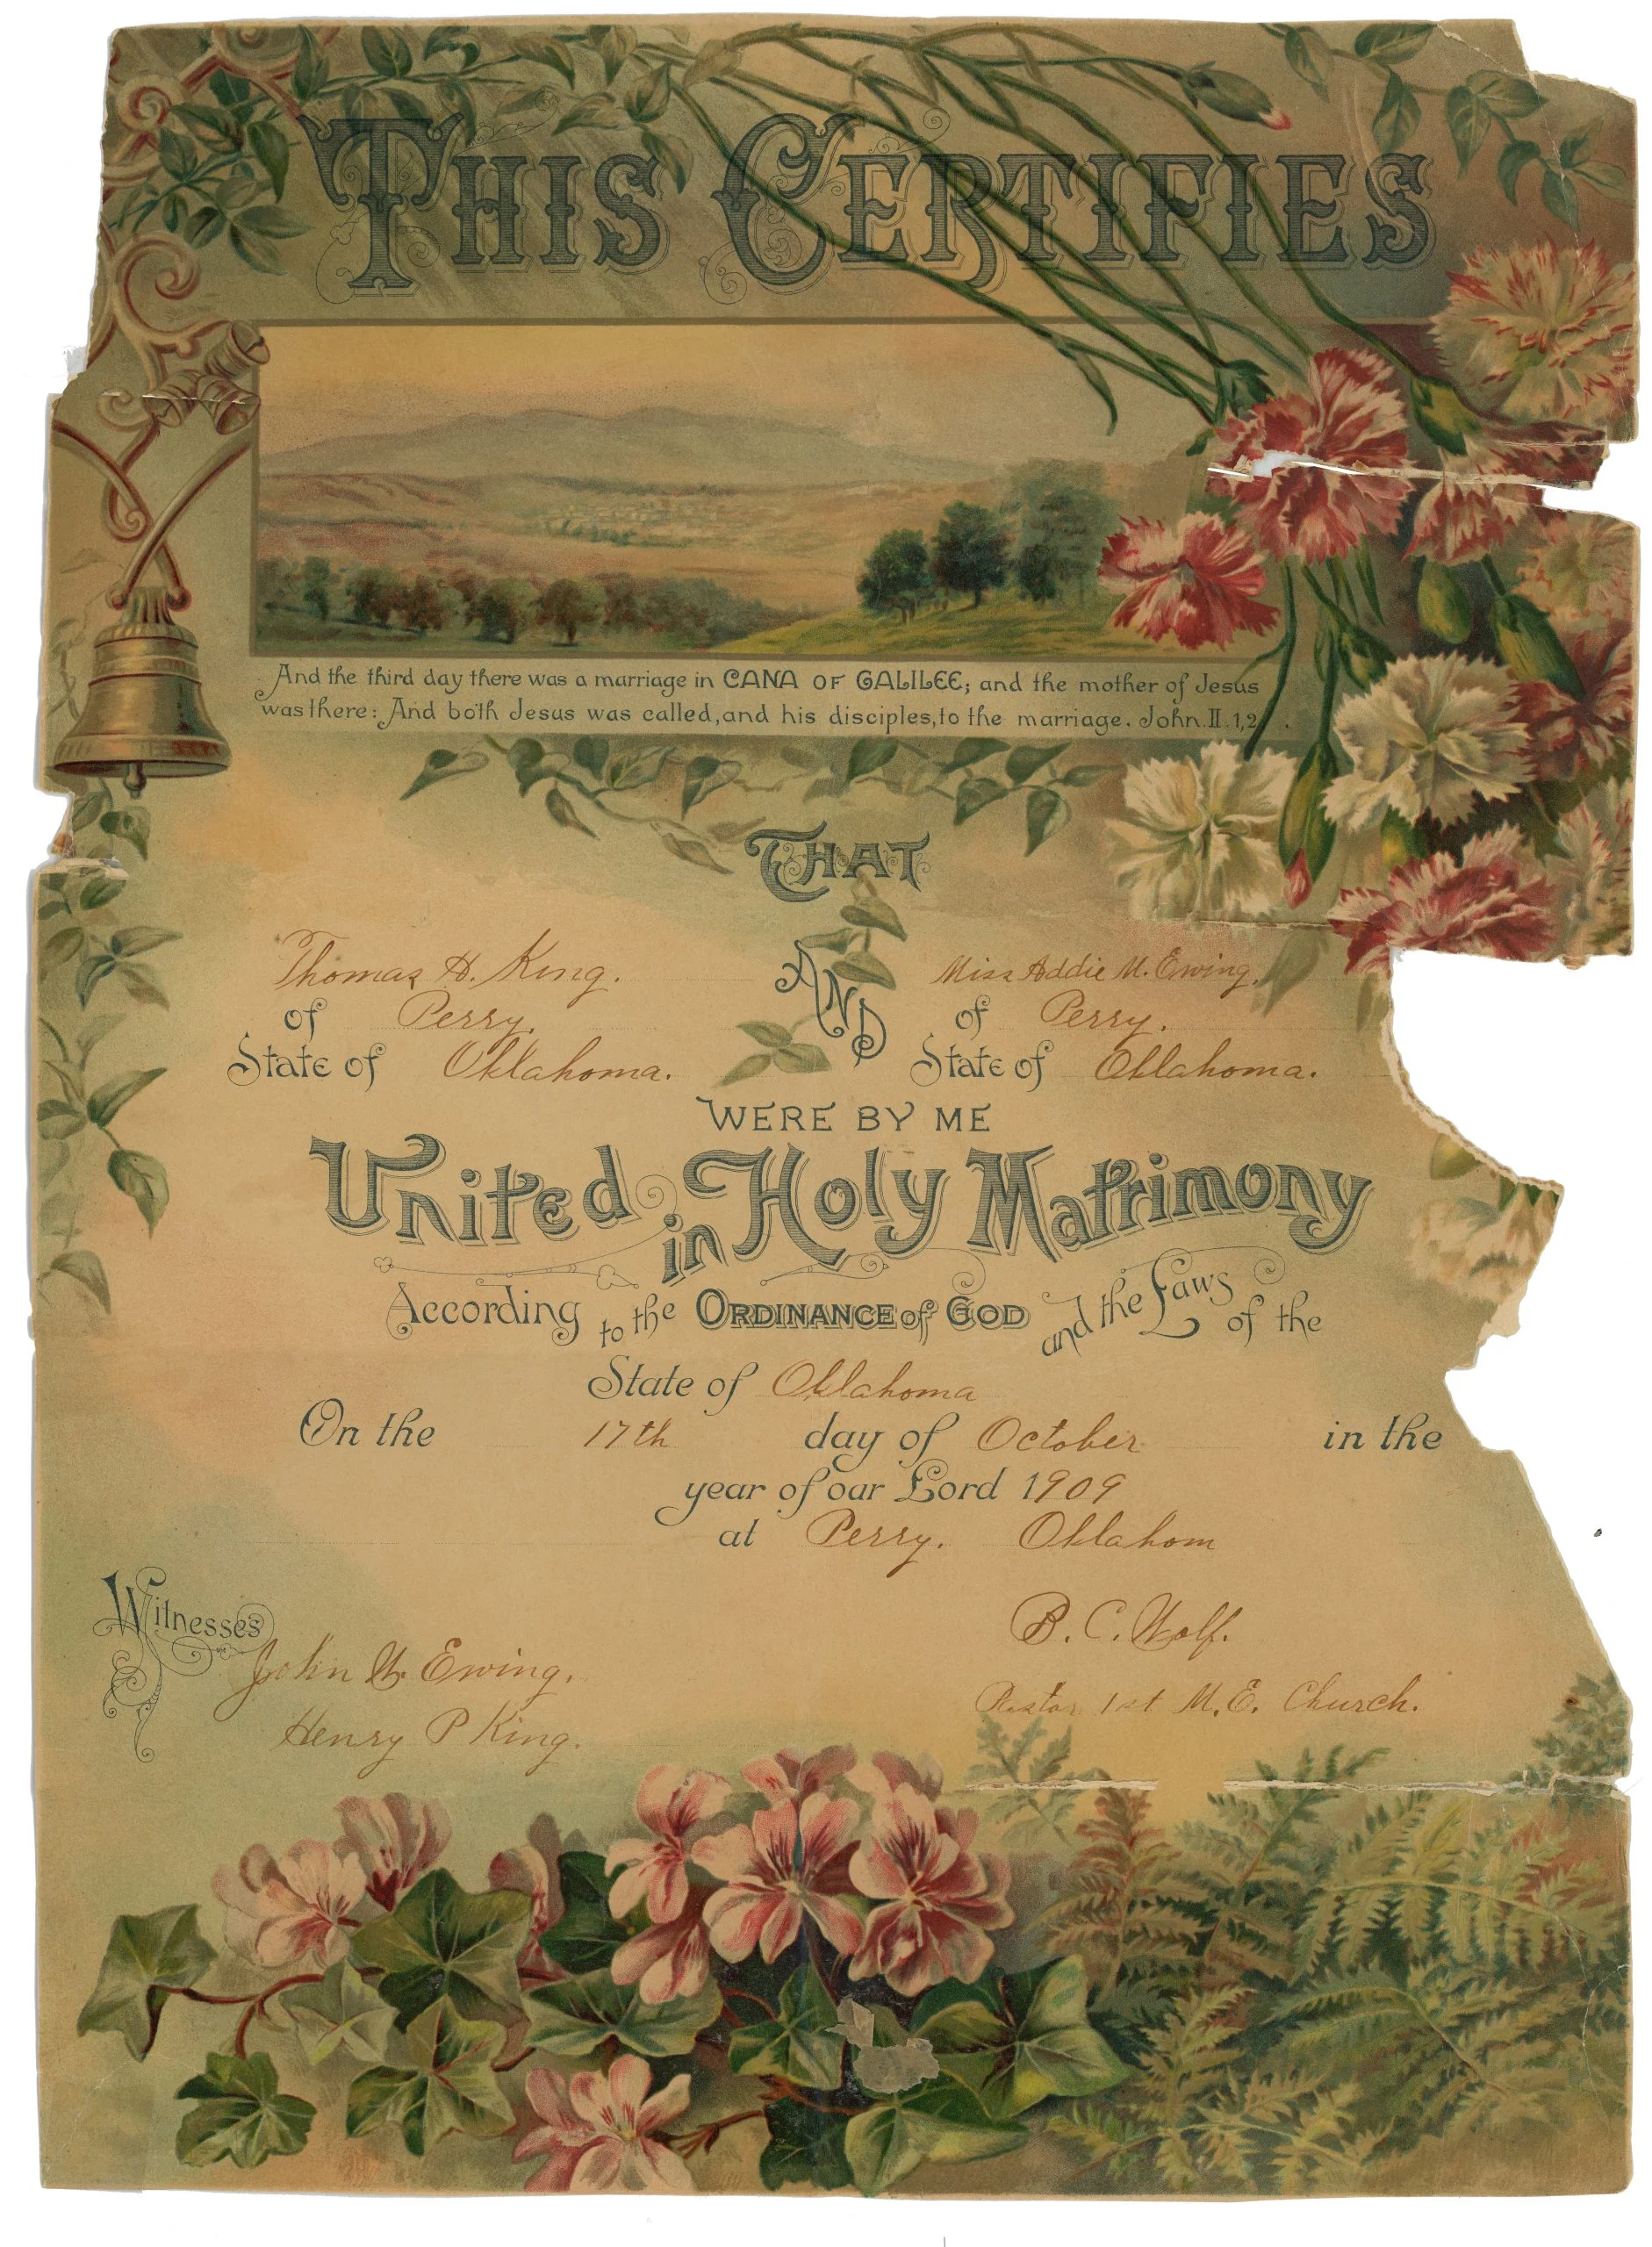 THIS CERTIFIES
And the third day there was a marriage in CANA OF GALILEE; and the mother of Jesus
was there: And both Jesus was called, and his disciples, to the marriage. John. II. 1,2.
THAT
Thomas H. King. AND Miss Addie M. Ewing.
of Perry. of Perry.
State of Oklahoma. State of Oklahoma.
WERE BY ME
United in Holy Matrimony
According to the ORDINANCE of GOD and the Laws of the
State of Oklahoma
On the 17th day of October in the
year of our Lord 1909
at Perry. Oklahom
Witnesses
B. C. Wolf.
John W. Ewing.
Pastor 1st M. E. Church.
Henry P King.